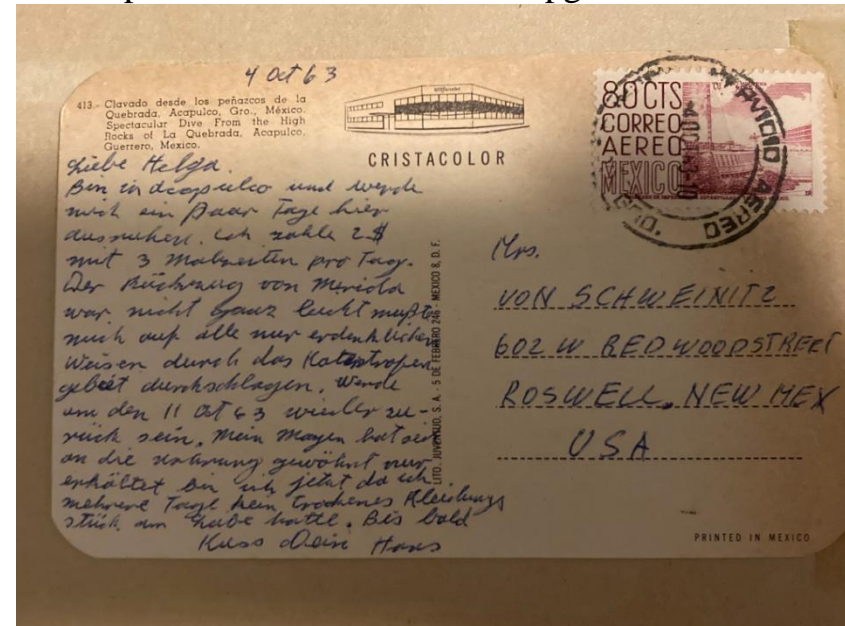 4 Oct 63
413.- Clavado desde los peñazcos de la
Quebrada, Acapulco, Gro., México.
Spectacular Dive From the High
Rocks of La Quebrada, Acapulco,
Guerrero, Mexico.
CRISTACOLOR
Liebe Helga.
Bin in Acapulco und werde
mich ein Paar Tage hier
ausruhen. Ich zahle 2 $
mit 3 Malzeiten pro Tag.
Der Rückzug von Merida
war nicht ganz leicht mußte
mich auf alle nur erdenklichen
Weisen durch das Katastropen
gebiet durchschlagen. Werde
um den 11 Oct 63 wieder zu-
rück sein. Mein Magen hat sich
an die Nahrung gewöhnt nur
erkältet bin ich jetzt da ich
mehrere Tage kein trockenes Kleidungs
stück am Leibe hatte. Bis bald
Kuss Dein Hans
LITO. JUVENTUD, S. A. - 5 DE FEBRERO 246 - MEXICO 8, D. F.
80 CTS
CORREO
AEREO
MEXICO
AEREO
Mrs.
VON SCHWEINITZ
602 W REDWOODSTREET
ROSWELL, NEW MEX
USA
PRINTED IN MEXICO